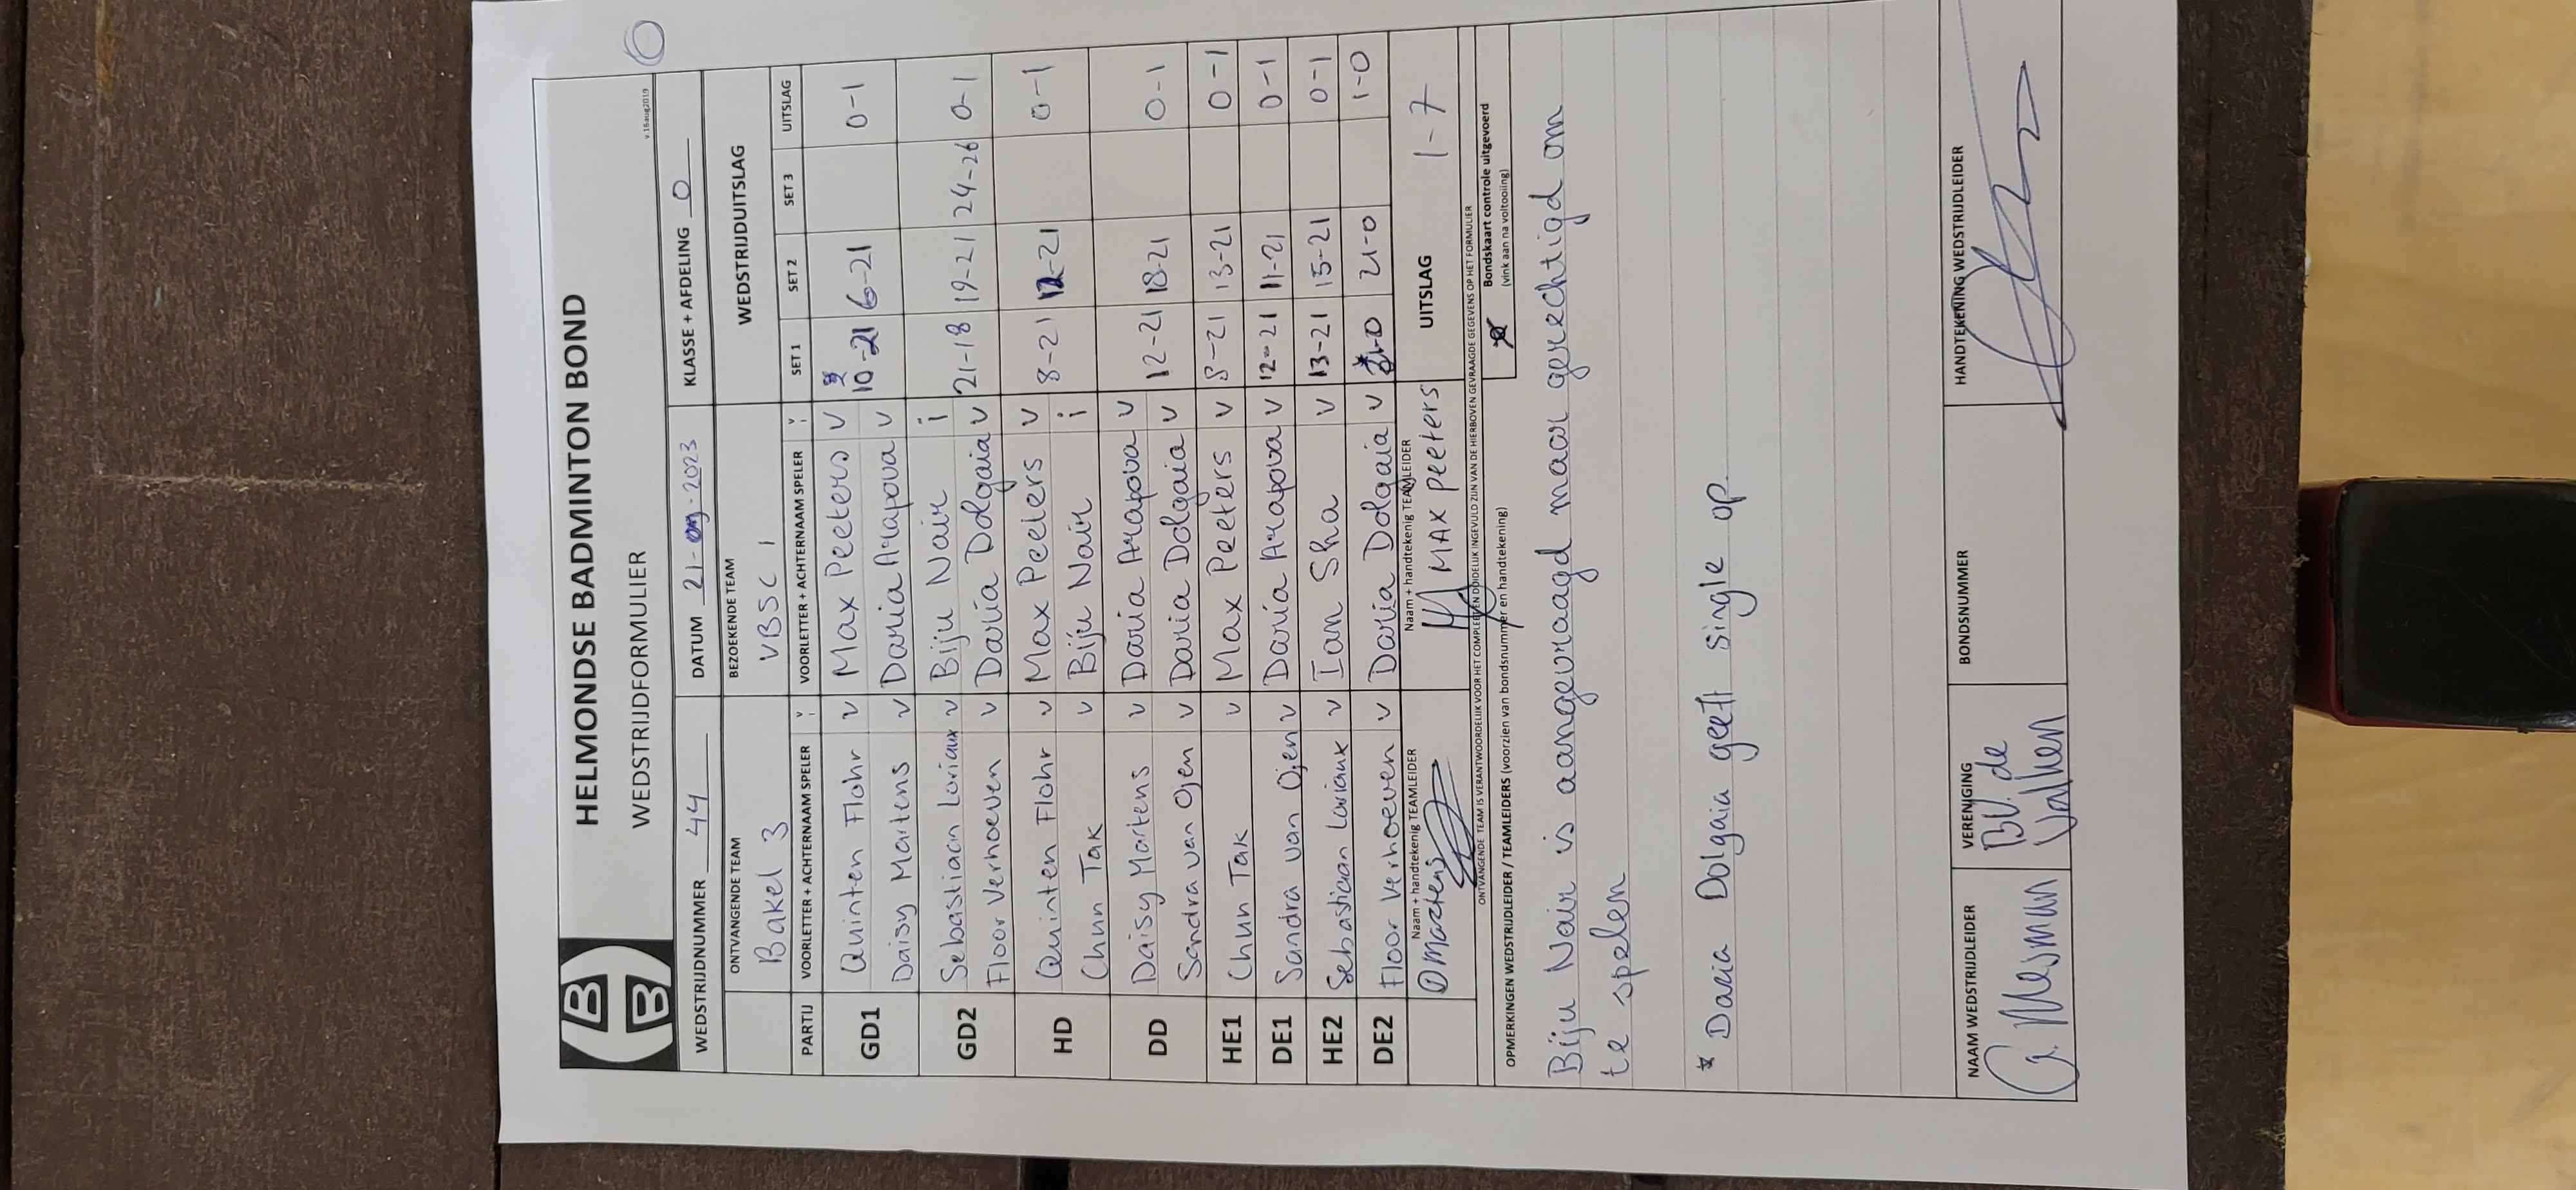 HELMONDSE BADMINTON BOND
WEDSTRIJDFORMULIER
v 16aug2019
WEDSTRIJDNUMMER 44 DATUM 21-09-2023 KLASSE + AFDELING 0
ONTVANGENDE TEAM BEZOEKENDE TEAM WEDSTRIJDUITSLAG
Bakel 3 VBSC 1
PARTIJ VOORLETTER + ACHTERNAAM SPELER V VOORLETTER + ACHTERNAAM SPELER V SET 1 SET 2 SET 3 UITSLAG
GD1 Quinten Flohr v Max Peeters v 10-21 6-21 0-1
Daisy Martens v Daria Arapova v
GD2 Sebastiaan Loriaux v Biju Nair i 21-18 19-21 24-26 0-1
Floor Verhoeven v Daria Dolgaia v
HD Quinten Flohr v Max Peeters v 8-21 12-21 0-1
Chun Tak v Biju Nair i
DD Daisy Martens v Daria Arapova v 12-21 18-21 0-1
Sandra van Ojen v Daria Dolgaia v
HE1 Chun Tak v Max Peeters v 8-21 13-21 0-1
DE1 Sandra van Ojen v Daria Arapova v 12-21 11-21 0-1
HE2 Sebastiaan Loriaux v Ian Sha v 13-21 15-21 0-1
DE2 Floor Verhoeven v Daria Dolgaia v 21-0 21-0 1-0
Naam + handtekenig TEAMLEIDER Naam + handtekenig TEAMLEIDER UITSLAG 1-7
D Martens MAX Peeters
ONTVANGENDE TEAM IS VERANTWOORDELIJK VOOR HET COMPLEET EN DUIDELIJK INGEVULD ZIJN VAN DE HIERBOVEN GEVRAAGDE GEGEVENS OP HET FORMULIER
OPMERKINGEN WEDSTRIJDLEIDER / TEAMLEIDERS (voorzien van bondsnummer en handtekening) Bondskaart controle uitgevoerd
(vink aan na voltooiing)
Biju Nair is aangevraagd maar gerechtigd om
te spelen
* Daria Dolgaia geeft single op
NAAM WEDSTRIJDLEIDER VERENIGING BONDSNUMMER HANDTEKENING WEDSTRIJDLEIDER
G. Mesman BV. de
Valken